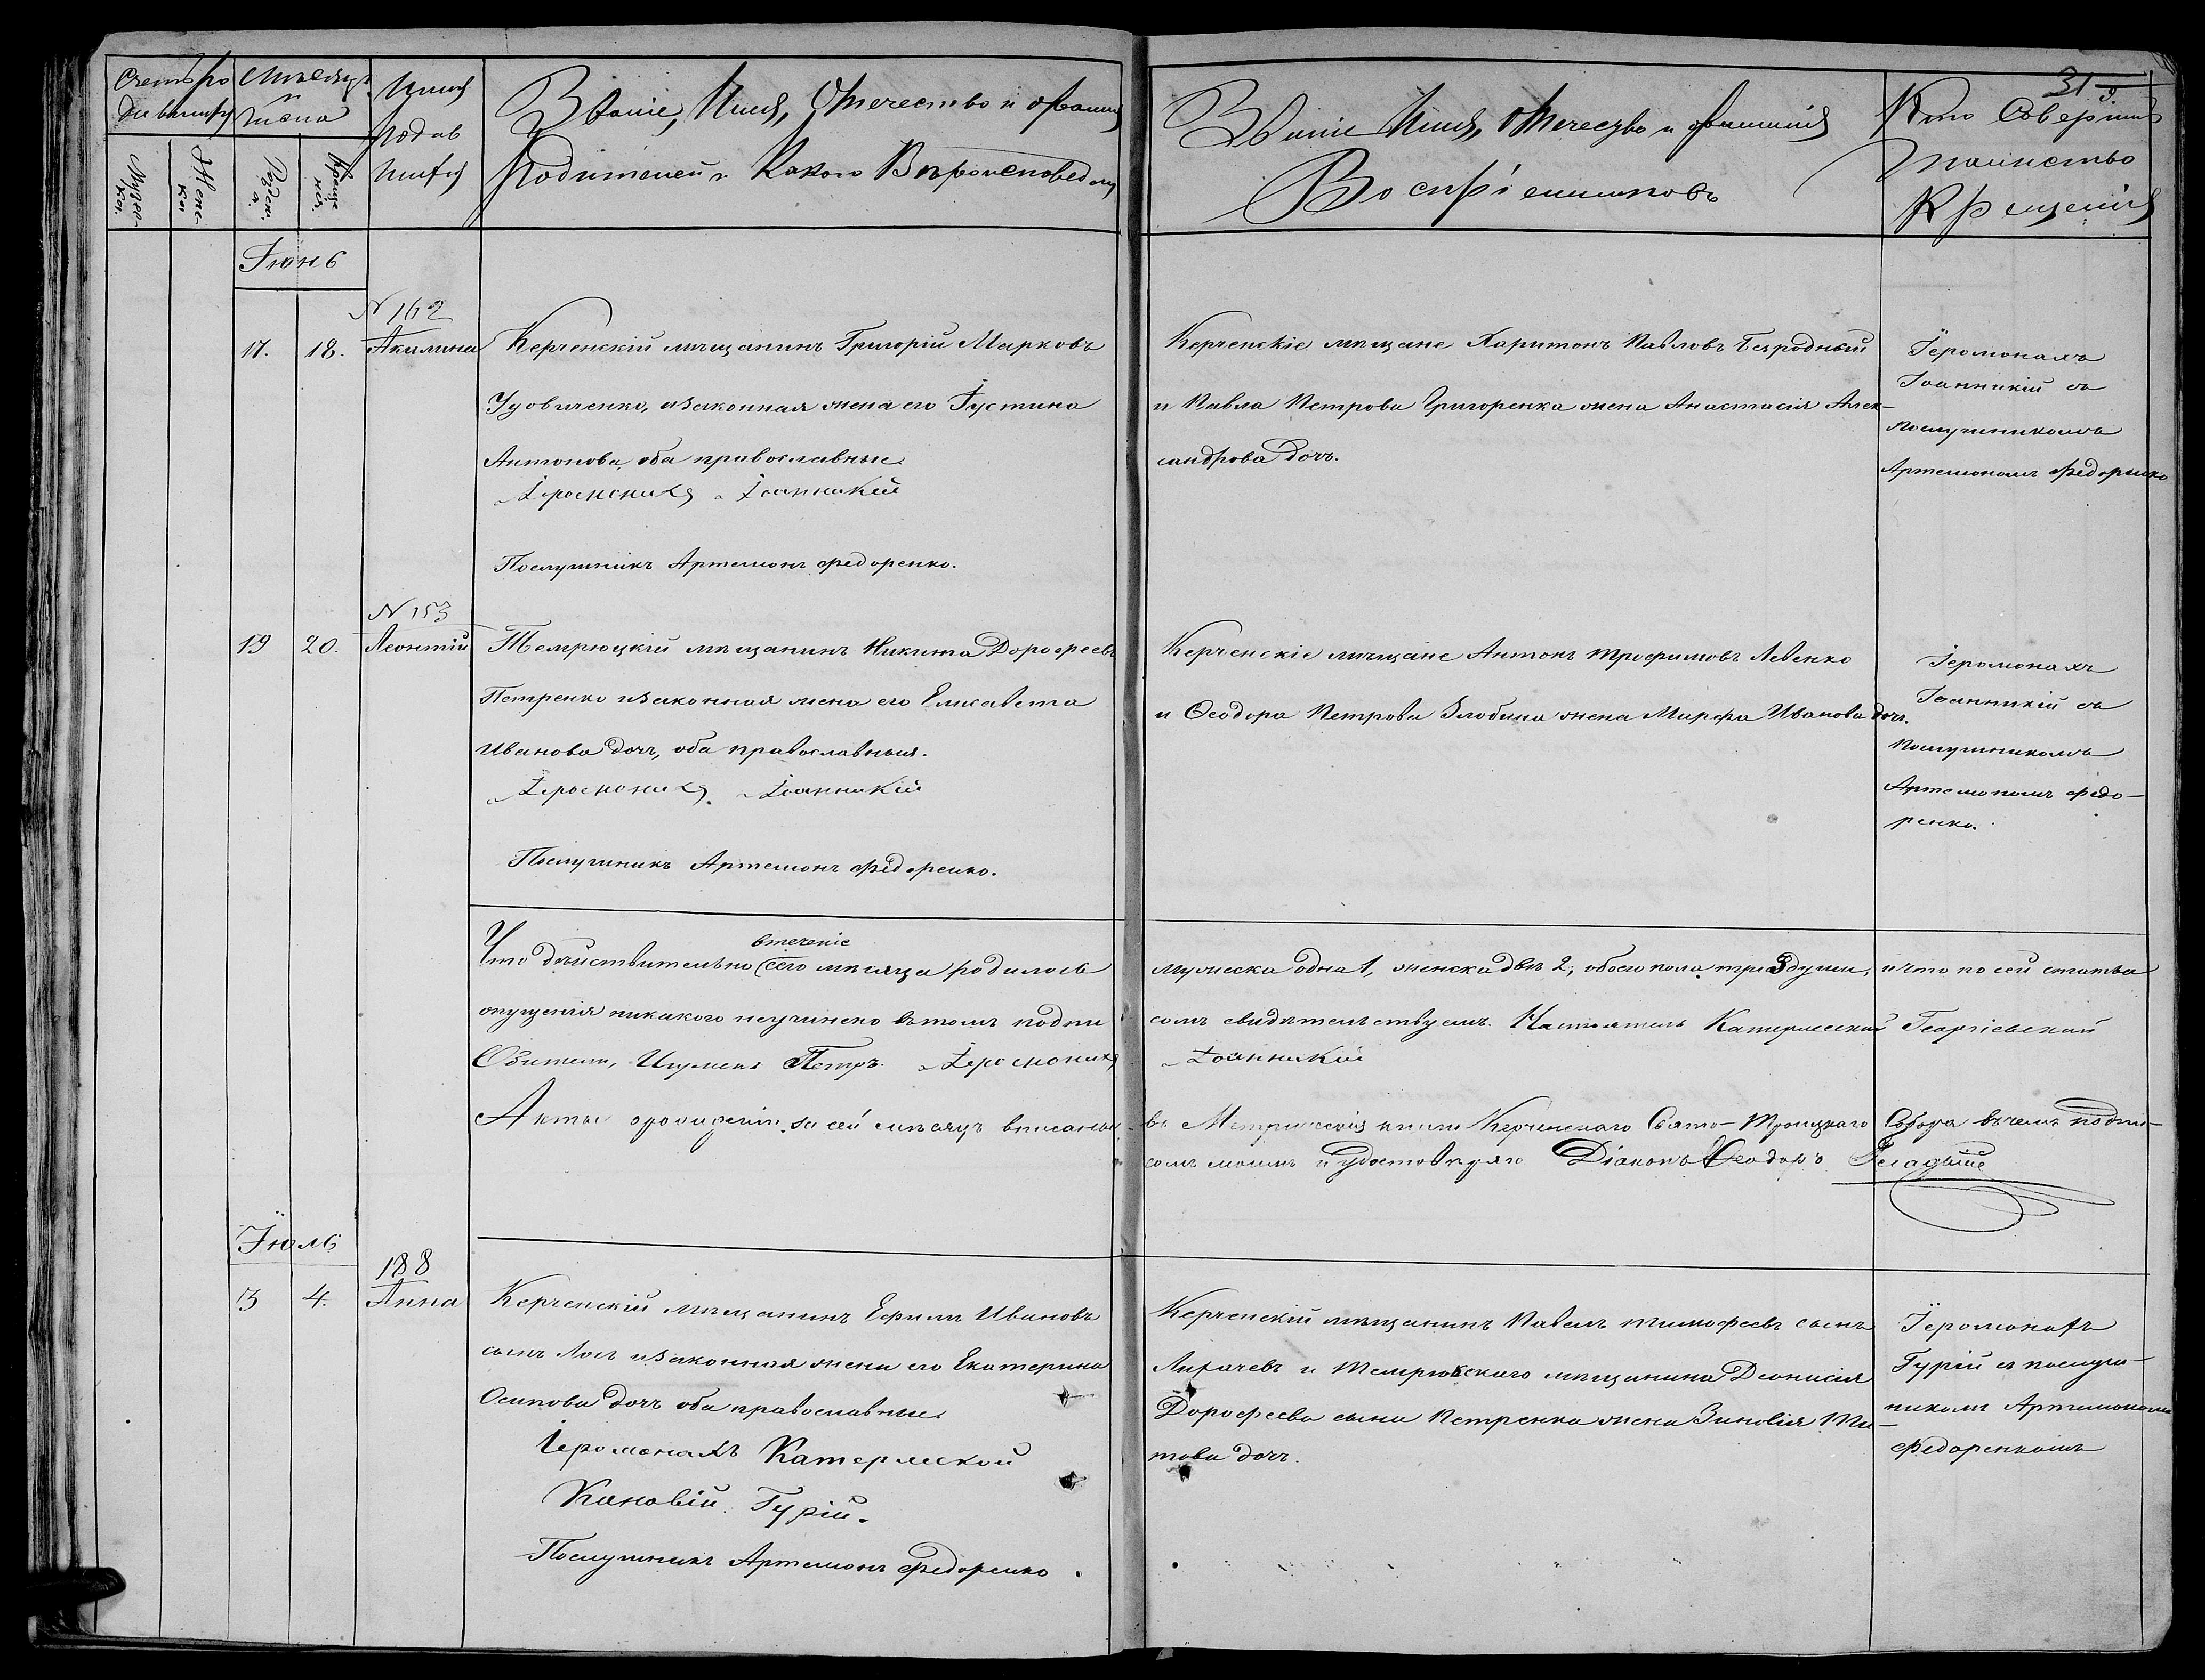 31
Счетъ ро
дившихся
Мѣсяцъ
и
числа
Имя
родив
шихся
Званіе, Имя, Отечество и Фамилія
Родителей и Какого Вѣроисповеданія
Званіе Имя, Отечество и Фамилія
Воспріемниковъ
Кто Совершилъ
таинство
Крещенія
Мужес-
каго.
Женс-
каго
Рожден.
Креще
нія.
Іюнь
N 162
17. 18. Акилина
Керченскій мѣщанинъ Григорій Марковъ
Удовиченко, изаконная жена его Іустина
Антонова, оба православные.
Іеромонахъ Іоанникій
Послушникъ Артемонъ Федоренко.
Керченскіе мѣщане Харитонъ Павловъ Безродный
и Павла Петрова Григоренка жена Анастасія Алек-
сандрова дочь.
Іеромонахъ
Іоанникій съ
послушникомъ
Артемономъ Федоренко
N 153
19 20. Леонтій
Темрюцкій мѣщанинъ Никита Дорофеевъ
Петренко изаконная жена его Елисавета
Иванова дочь, оба православныя.
Іеромонахъ Іоанникій
Послушникъ Артемонъ Федоренко.
Керченскіе мѣщане Антонъ Трофимовъ Левенко
и Ѳеодора Петрова Злобина жена Марфа Иванова дочь.
Іеромонахъ
Іоанникій съ
послушникомъ
Артемономъ Федо-
ренко.
втеченіе
Что дѣйствительно сего мѣсяца родилось мужеска одна 1, женска двѣ 2, обоего пола три 3 души, и что по сей статьи
опущенія никакого неучинено вътомъ подпи сомъ свидѣтельствуемъ. Настоятель Катерлесской Георгіевской
Обители, Игуменъ Петръ. Іеромонахъ Іоанникій
Акты о рожденіи за сей мѣсяцъ вписаны въ Метрическія книги Керченскаго Свято-Троицкаго Собора въ чемъ подпи-
сомъ моимъ и удостовѣряю Діаконъ Ѳеодоръ
Іюль
188
3 4. Анна
Керченскій мѣщанинъ Ефимъ Ивановъ
сынъ Лось изаконная жена его Екатерина
Осипова дочь оба православные.
Іеромонахъ Катерлеской
Киновіи Гурій.
Послушникъ Артемонъ Федоренко.
Керченскій мѣщанинъ Павелъ Тимофеевъ сынъ
Лихачевъ и Темрюкскаго мѣщанина Деонисія
Дорофеева сына Петренка жена Зиновія Ти-
това дочь.
Іеромонахъ
Гурій съ послуш-
никомъ Артимономъ
Федоренкомъ